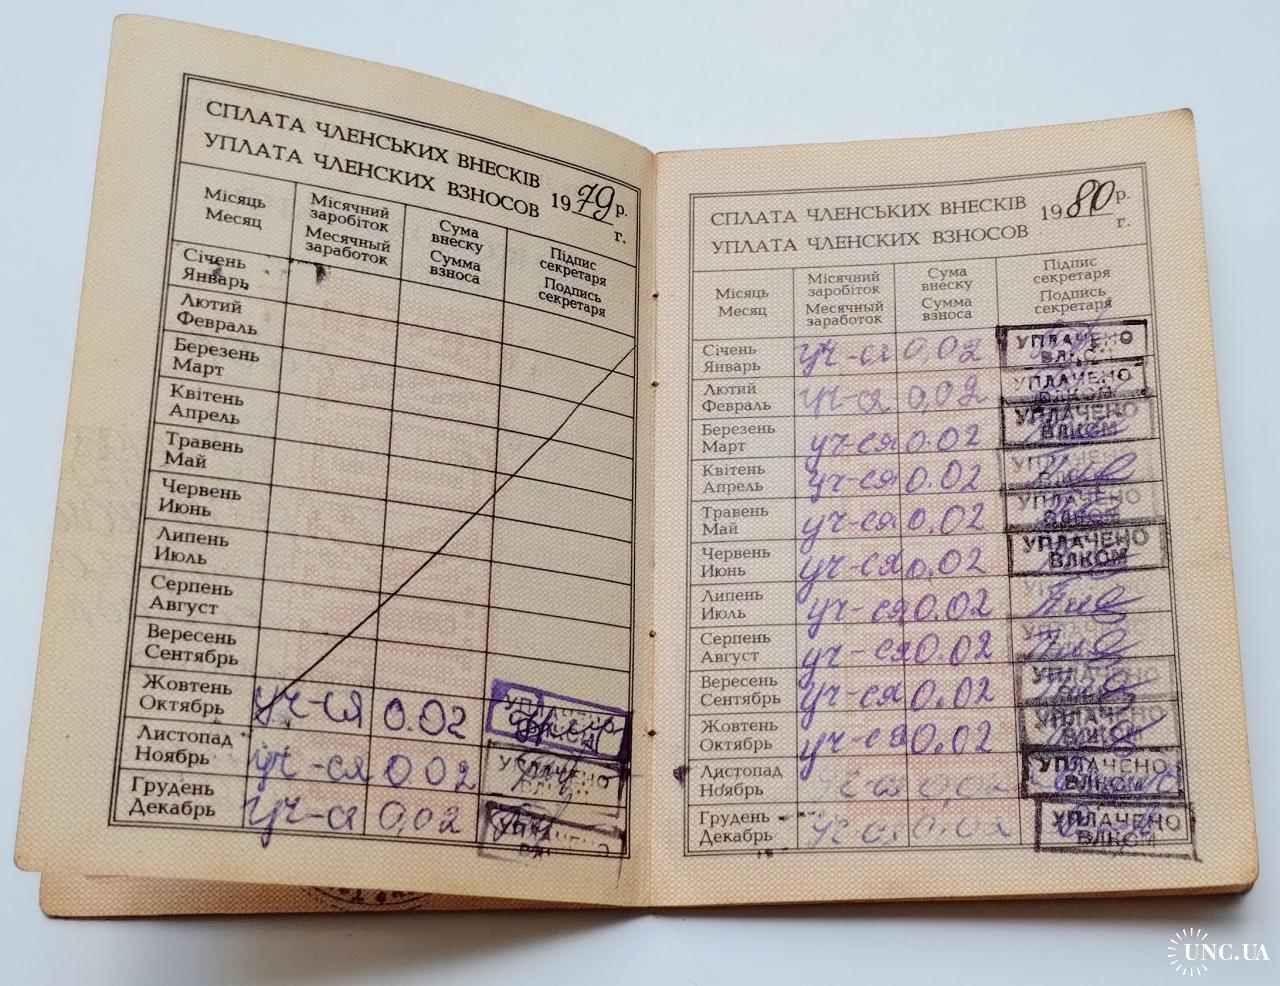 СПЛАТА ЧЛЕНСЬКИХ ВНЕСКІВ
УПЛАТА ЧЛЕНСКИХ ВЗНОСОВ
1979 р.
г.
Місяць
Месяц
Місячний
заробіток
Месячный
заработок
Сума
внеску
Сумма
взноса
Підпис
секретаря
Подпись
секретаря
Січень
Январь
Лютий
Февраль
Березень
Март
Квітень
Апрель
Травень
Май
Червень
Июнь
Липень
Июль
Серпень
Август
Вересень
Сентябрь
Жовтень
Октябрь
уч-ся 0.02 УПЛАЧЕНО
Листопад
Ноябрь
уч-ся 0.02 УПЛАЧЕНО
Грудень
Декабрь
уч-ся 0,02 УПЛАЧЕНО
СПЛАТА ЧЛЕНСЬКИХ ВНЕСКІВ
УПЛАТА ЧЛЕНСКИХ ВЗНОСОВ
1980 р.
г.
Місяць
Месяц
Місячний
заробіток
Месячный
заработок
Сума
внеску
Сумма
взноса
Підпис
секретаря
Подпись
секретаря
Січень
Январь
уч-ся 0,02 УПЛАЧЕНО
ВЛКСМ
Лютий
Февраль
уч-ся 0,02 УПЛАЧЕНО
ВЛКСМ
Березень
Март
уч-ся 0.02 УПЛАЧЕНО
ВЛКСМ
Квітень
Апрель
уч-ся 0.02 УПЛАЧЕНО
Травень
Май
уч-ся 0.02 УПЛАЧЕНО
Червень
Июнь
уч-ся 0.02 УПЛАЧЕНО
ВЛКСМ
Липень
Июль
уч-ся 0.02
Серпень
Август
уч-ся 0.02
Вересень
Сентябрь
уч-ся 0.02 УПЛАЧЕНО
Жовтень
Октябрь
уч-ся 0.02 УПЛАЧЕНО
ВЛКСМ
Листопад
Ноябрь
0,02 УПЛАЧЕНО
ВЛКСМ
Грудень
Декабрь
0.02 УПЛАЧЕНО
ВЛКСМ
UNC.UA